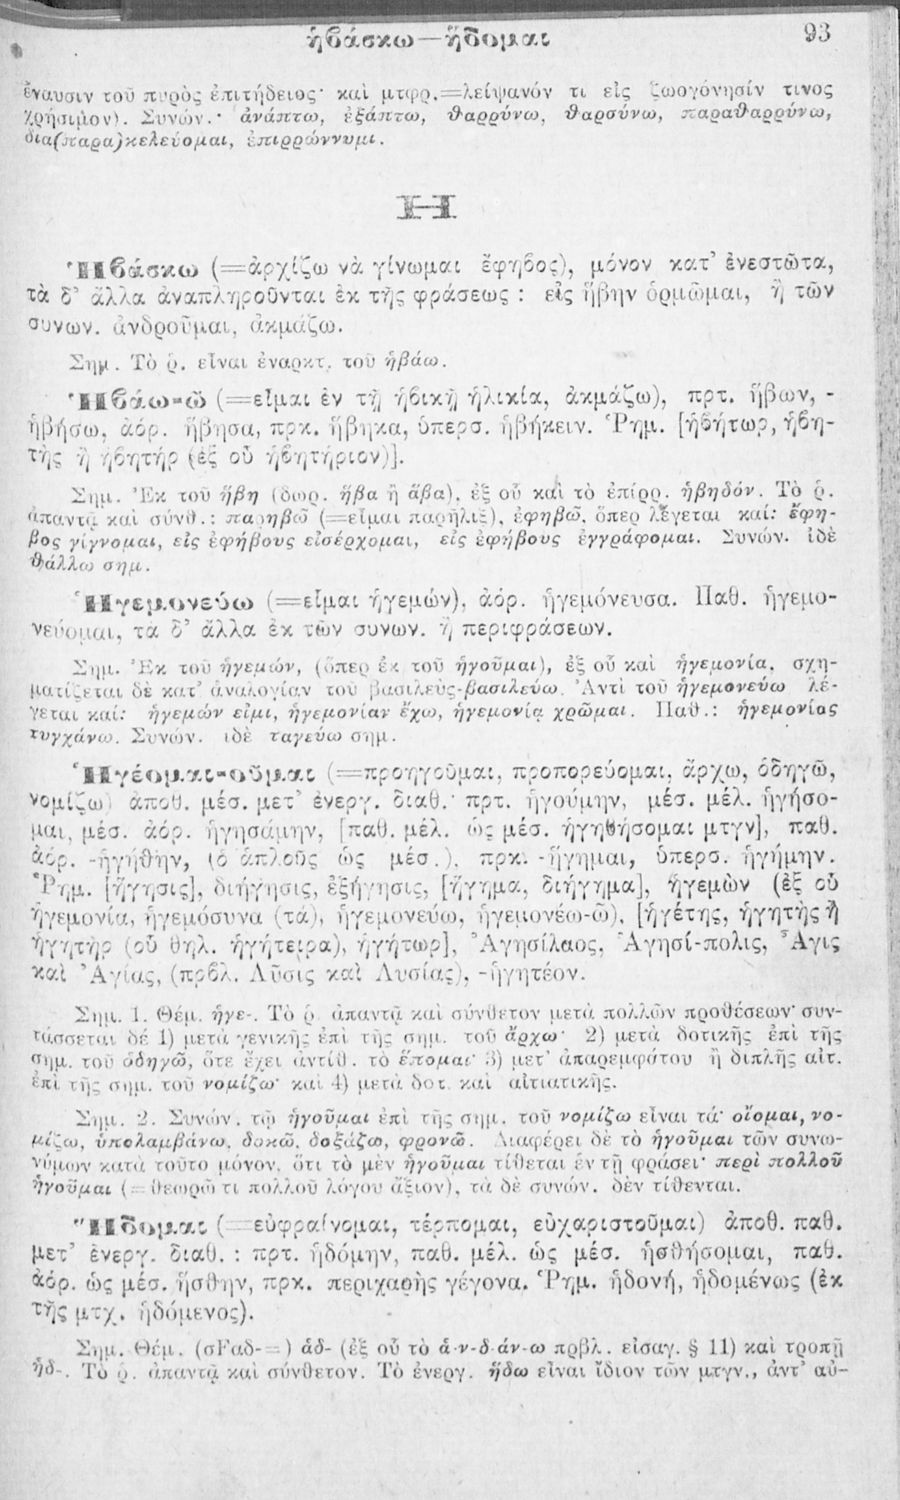 ἡβάσκω—ἥδομαι 93
ἔναυσιν τοῦ πυρὸς ἐπιτήδειος· καὶ μτφρ.=λείψανόν τι εἰς ζωογόνησίν τινος
χρήσιμον). Συνών.· ἀνάπτω, ἐξάπτω, θαρρύνω, θαρσύνω, παραθαρρύνω,
δια(παρα)κελεύομαι, ἐπιρρώννυμι.
Η
Ἡβάσκω (=ἀρχίζω νὰ γίνωμαι ἔφηβος), μόνον κατ’ ἐνεστῶτα,
τὰ δ’ ἄλλα ἀναπληροῦνται ἐκ τῆς φράσεως : εἰς ἥβην ὁρμῶμαι, ἢ τῶν
συνων. ἀνδροῦμαι, ἀκμάζω.
Σημ. Τὸ ῥ. εἶναι ἐναρκτ. τοῦ ἡβάω.
Ἡβάω-ῶ (=εἶμαι ἐν τῇ ἡβικῇ ἡλικίᾳ, ἀκμάζω), πρτ. ἥβων, -
ἡβήσω, ἀόρ. ἥβησα, πρκ. ἥβηκα, ὑπερσ. ἡβήκειν. Ῥημ. [ἡβήτωρ, ἡβη-
τὴς ἢ ἡβητήρ (ἐξ οὗ ἡβητήριον)].
Σημ. Ἐκ τοῦ ἥβη (δωρ. ἥβα ἢ ἅβα), ἐξ οὗ καὶ τὸ ἐπίρρ. ἡβηδόν. Τὸ ῥ.
ἀπαντᾷ καὶ σύνθ.: παρηβῶ (=εἶμαι παρῆλιξ), ἐφηβῶ, ὅπερ λέγεται καί: ἔφη-
βος γίγνομαι, εἰς ἐφήβους εἰσέρχομαι, εἰς ἐφήβους ἐγγράφομαι. Συνών. ἰδὲ
θάλλω σημ.
Ἡγεμονεύω (=εἶμαι ἡγεμών), ἀόρ. ἡγεμόνευσα. Παθ. ἡγεμο-
νεύομαι, τὰ δ’ ἄλλα ἐκ τῶν συνων. ἢ περιφράσεων.
Σημ. Ἐκ τοῦ ἡγεμών, (ὅπερ ἐκ τοῦ ἡγοῦμαι), ἐξ οὗ καὶ ἡγεμονία, σχη-
ματίζεται δὲ κατ’ ἀναλογίαν τοῦ βασιλεύς-βασιλεύω. Ἀντὶ τοῦ ἡγεμονεύω λέ-
γεται καί: ἡγεμών εἰμι, ἡγεμονίαν ἔχω, ἡγεμονίᾳ χρῶμαι. Παθ.: ἡγεμονίας
τυγχάνω. Συνών. ἰδὲ ταγεύω σημ.
Ἡγέομαι-οῦμαι (=προηγοῦμαι, προπορεύομαι, ἄρχω, ὁδηγῶ,
νομίζω) ἀποθ. μέσ. μετ’ ἐνεργ. διαθ.· πρτ. ἡγούμην, μέσ. μέλ. ἡγήσο-
μαι, μέσ. ἀόρ. ἡγησάμην, [παθ. μέλ. ὡς μέσ. ἡγηθήσομαι μτγν], παθ.
ἀόρ. -ἡγήθην, (ὁ ἁπλοῦς ὡς μέσ.), πρκ. -ἥγημαι, ὑπερσ. ἡγήμην.
Ῥημ. [ἥγησις], διήγησις, ἐξήγησις, [ἥγημα, διήγημα], ἡγεμὼν (ἐξ οὗ
ἡγεμονία, ἡγεμόσυνα (τά), ἡγεμονεύω, ἡγεμονέω-ῶ), [ἡγέτης, ἡγητὴς ἢ
ἡγητὴρ (οὗ θηλ. ἡγήτειρα), ἡγήτωρ], Ἀγησίλαος, Ἀγησί-πολις, Ἆγις
καὶ Ἀγίας, (πρβλ. Λῦσις καὶ Λυσίας), -ἡγητέον.
Σημ. 1. Θέμ. ἡγε-. Τὸ ῥ. ἀπαντᾷ καὶ σύνθετον μετὰ πολλῶν προθέσεων· συν-
τάσσεται δὲ 1) μετὰ γενικῆς ἐπὶ τῆς σημ. τοῦ ἄρχω· 2) μετὰ δοτικῆς ἐπὶ τῆς
σημ. τοῦ ὁδηγῶ, ὅτε ἔχει ἀντίθ. τὸ ἕπομαι· 3) μετ’ ἀπαρεμφάτου ἢ διπλῆς αἰτ.
ἐπὶ τῆς σημ. τοῦ νομίζω· καὶ 4) μετὰ δοτ. καὶ αἰτιατικῆς.
Σημ. 2. Συνών. τῷ ἡγοῦμαι ἐπὶ τῆς σημ. τοῦ νομίζω εἶναι τά· οἴομαι, νο-
μίζω, ὑπολαμβάνω, δοκῶ, δοξάζω, φρονῶ. Διαφέρει δὲ τὸ ἡγοῦμαι τῶν συνω-
νύμων κατὰ τοῦτο μόνον, ὅτι τὸ μὲν ἡγοῦμαι τίθεται ἐν τῇ φράσει· περὶ πολλοῦ
ἡγοῦμαι (=θεωρῶ τι πολλοῦ λόγου ἄξιον), τὰ δὲ συνών. δὲν τίθενται.
Ἥδομαι (=εὐφραίνομαι, τέρπομαι, εὐχαριστοῦμαι) ἀποθ. παθ.
μετ’ ἐνεργ. διαθ. : πρτ. ἡδόμην, παθ. μέλ. ὡς μέσ. ἡσθήσομαι, παθ.
ἀόρ. ὡς μέσ. ἥσθην, πρκ. περιχαρὴς γέγονα. Ῥημ. ἡδονή, ἡδομένως (ἐκ
τῆς μτχ. ἡδόμενος).
Σημ. Θέμ. (σFαδ-=) ἁδ- (ἐξ οὗ τὸ ἁ-ν-δ-άν-ω πρβλ. εἰσαγ. § 11) καὶ τροπῇ
ἡδ-. Τὸ ῥ. ἀπαντᾷ καὶ σύνθετον. Τὸ ἐνεργ. ἥδω εἶναι ἴδιον τῶν μτγν., ἀντ’ αὐ-